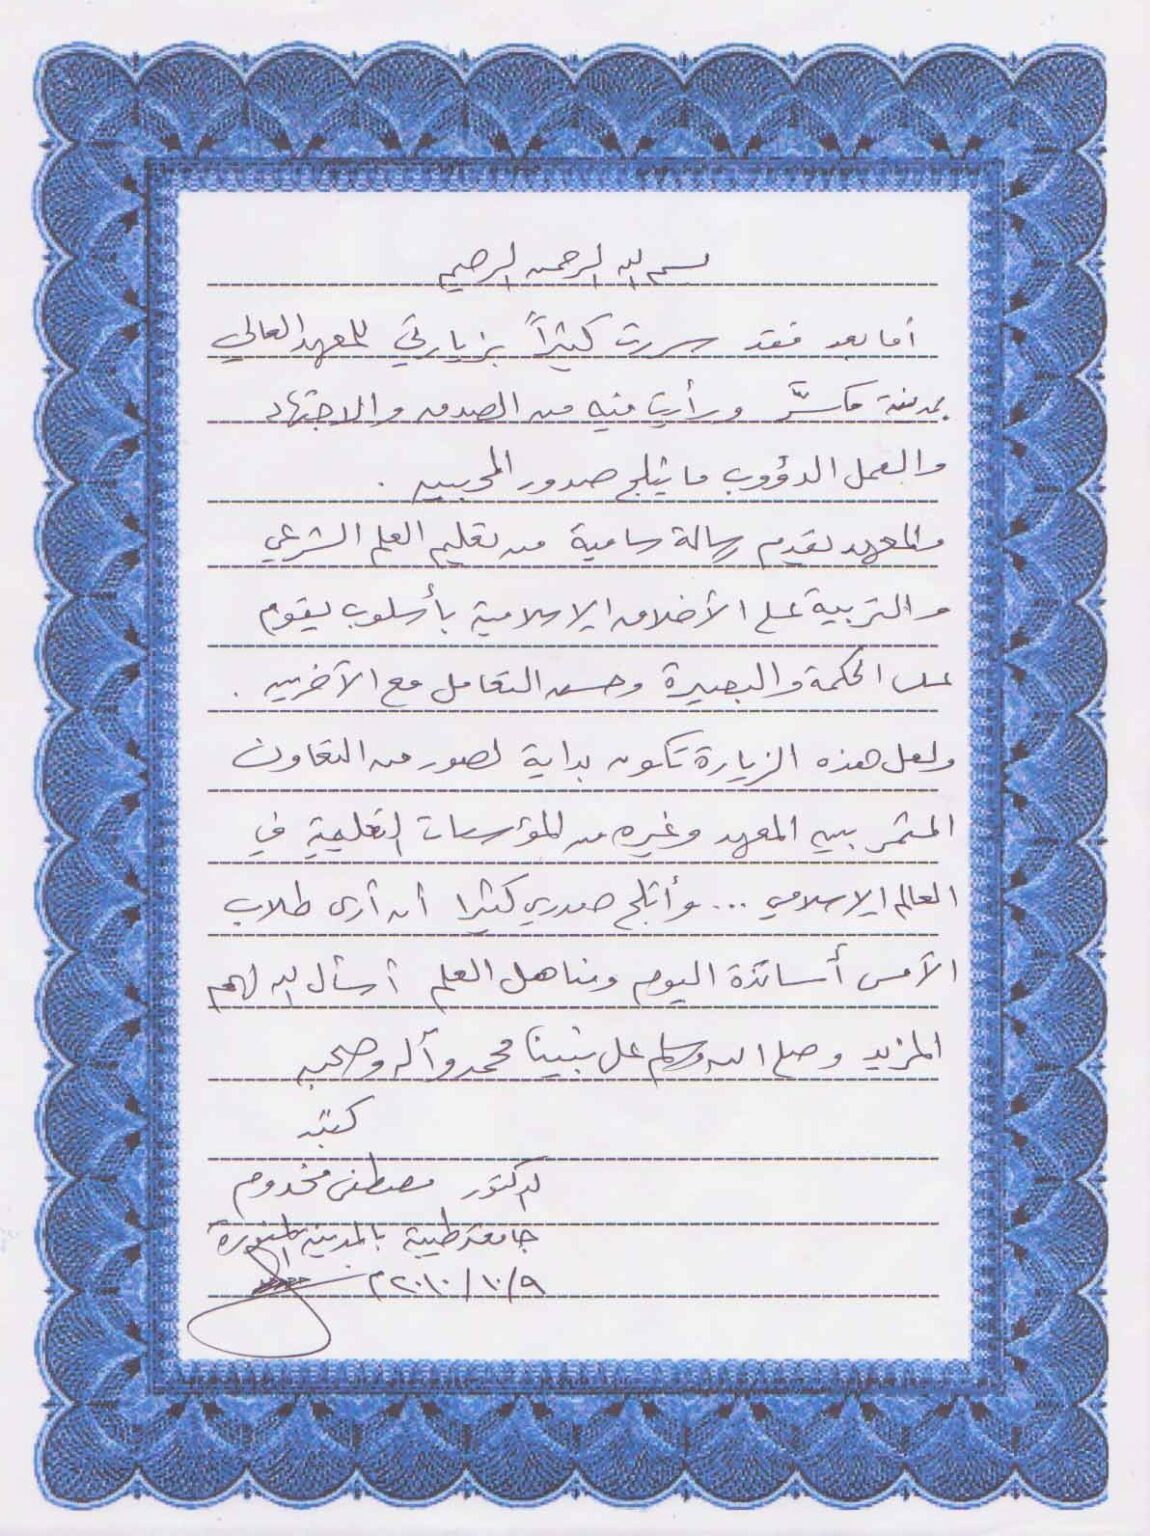 بسم الله الرحمن الرحيم
أما بعد فقد سررت كثيراً بزيارتي للمعهد العالي
بمدينة ماكسَّر ورأيت فيه من الصدق والاجتهاد
والعمل الدؤوب ما يثلج صدور المحبين .
والمعهد يقدم رسالة سامية من تعليم العلم الشرعي
والتربية على الأخلاق الإسلامية بأسلوب يقوم
على الحكمة والبصيرة وحسن التعامل مع الآخرين .
ولعل هذه الزيارة تكون بداية لصور من التعاون
المستمر بين المعهد وغيره من المؤسسات التعليمية في
العالم الإسلامي ... وأثلج صدري كثيرا أن أرى طلاب
الأمس أساتذة اليوم ومناهل العلم أسأل الله لهم
المزيد وصلى الله وسلم على نبينا محمد وآله وصحبه
كتبه
الدكتور مصطفى مخدوم
جامعة طيبة بالمدينة المنورة
٢٠١٠/١٠/٩م